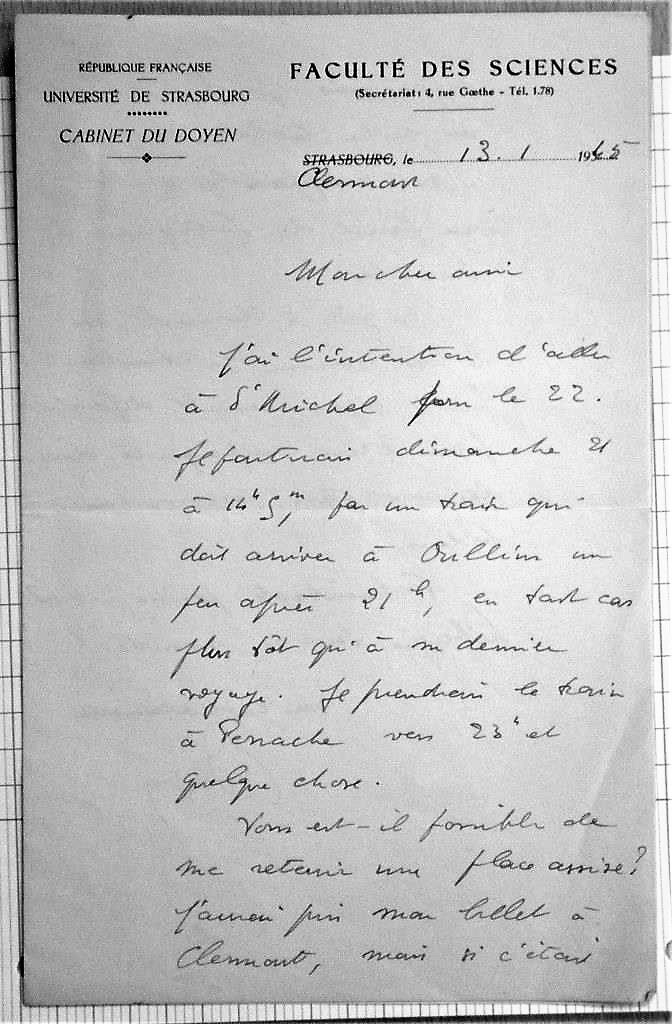 RÉPUBLIQUE FRANÇAISE
UNIVERSITÉ DE STRASBOURG
CABINET DU DOYEN
FACULTÉ DES SCIENCES
(Secrétariat : 4, rue Gœthe - Tél. 1.78)
STRASBOURG, le 13.1 1945
Clermont
Mon cher ami
J'ai l'intention d'aller
à St Michel pour le 22.
Je partirai dimanche 21
à 14h 5m, par un train qui
doit arriver à Oullins un
peu après 21h, en tout cas
plus tôt qu'à mon dernier
voyage. Je prendrai le train
à Perrache vers 23h et
quelque chose.
Vous est-il possible de
me retenir une place assise?
J'aurai pris mon billet à
Clermont, mais si c'était